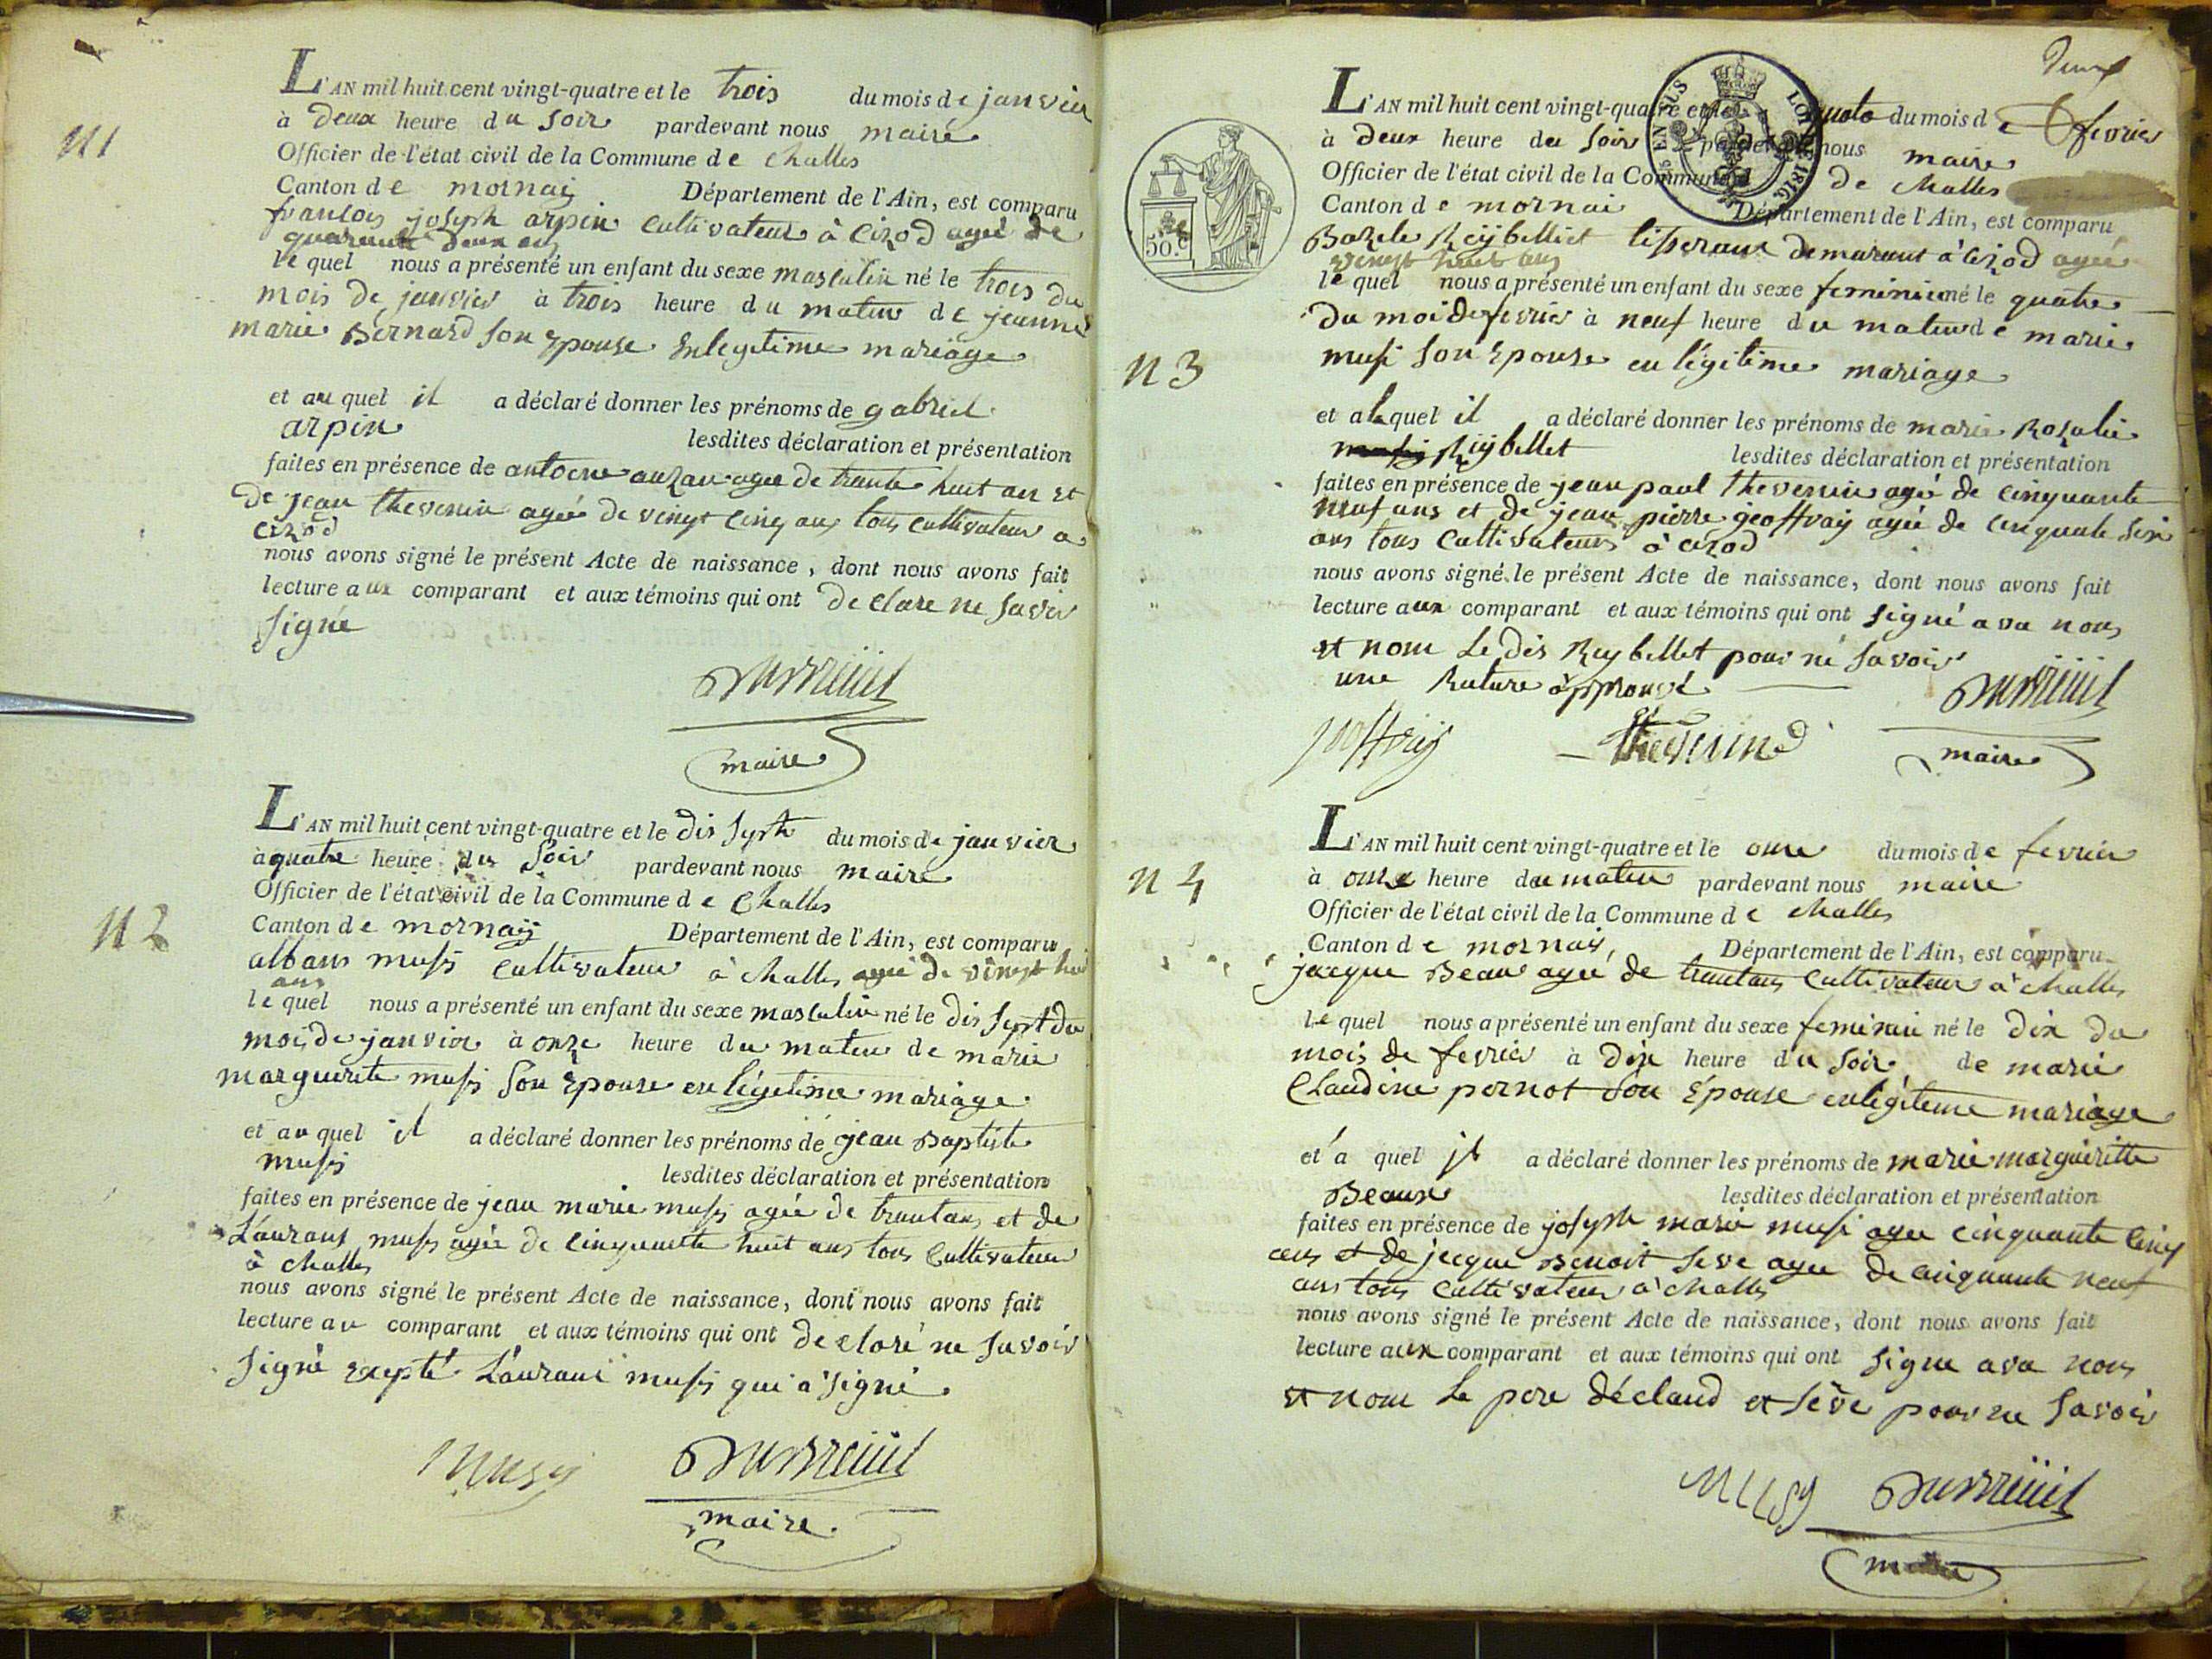 N 1
L'AN mil huit cent vingt-quatre et le trois du mois de janvier
à deux heure du soir pardevant nous maire
Officier de l'état civil de la Commune de challes
Canton de mornay Département de l'Ain, est comparu
francois joseph arpin cultivateur à cizod agée de
quarante deux ans
le quel nous a présenté un enfant du sexe masculin né le trois du
mois de janvier à trois heure du matin de jeanne
marie Bernard son Epouse En legitime mariage
et au quel il a déclaré donner les prénoms de gabriel
arpin lesdites déclaration et présentation
faites en présence de antoine auzan agée de trante huit an et
de jean thevenin agée de vingt cinq ans tous cultivateur a
cizod
nous avons signé le présent Acte de naissance, dont nous avons fait
lecture aux comparant et aux témoins qui ont declare ne savoir
signé
Dubreüil
maire
N 2
L'AN mil huit cent vingt-quatre et le dis sept du mois de janvier
à quatre heure du soir pardevant nous maire
Officier de l'état civil de la Commune de challes
Canton de mornay Département de l'Ain, est comparu
albans musy cultivateur à challes agée de vingt hui
ans
le quel nous a présenté un enfant du sexe masculin né le dis sept du
mois de janvier à onze heure du matin de marie
marguerite musy son Epouse en légitime mariage
et au quel il a déclaré donner les prénoms de jean Baptiste
musy lesdites déclaration et présentation
faites en présence de jean marie musy agée de trantans et de
Laurans musy agée de cinquante huit ans tous cultivateur
à challes
nous avons signé le présent Acte de naissance, dont nous avons fait
lecture au comparant et aux témoins qui ont declaré ne savoir
signé Excepté Laurans musy qui a signé
musy Dubreüil
maire
deux
N 3
50 c.
L'AN mil huit cent vingt-quatre et le quatre du mois de fevrier
à deux heure du soir pardevant nous maire
Officier de l'état civil de la Commune de challes
Canton de mornai Département de l'Ain, est comparu
Bazele Reybellet tisserant demarant à cizod agée
vingt huit ans
le quel nous a présenté un enfant du sexe feminin né le quatre
du moi de fevrier à neuf heure du matin de marie
musi son Epouse en légitime mariage
et a la quel il a déclaré donner les prénoms de marie Rozalie
musy Reybellet lesdites déclaration et présentation
faites en présence de jean paul thevenin agée de cinquante
neuf ans et de jean pierre geoffray agée de cinquate six
ans tous cultivateurs à cizod
nous avons signé le présent Acte de naissance, dont nous avons fait
lecture aux comparant et aux témoins qui ont signé ava nous
et nom Le dis Reybellet pour né savoir
une Rature approuvé
joffray thevenin Dubreüil
maire
N 4
L'AN mil huit cent vingt-quatre et le onze du mois de fevrier
à onze heure du matin pardevant nous maire
Officier de l'état civil de la Commune de challes
Canton de mornay, Département de l'Ain, est comparu
jacque Beau agée de trantans cultivateur à challes
le quel nous a présenté un enfant du sexe feminin né le dix du
mois de fevrier à dix heure du soir de marie
Claudine pernot son Epouse en légiteme mariage
et a quel il a déclaré donner les prénoms de marie marguéritte
Beaux lesdites déclaration et présentation
faites en présence de joseph marie musi agée cinquante cinq
ans et de jacque Benoit seve agée de cinquante neuf
ans tous cultivateur à challes
nous avons signé le présent Acte de naissance, dont nous avons fait
lecture aux comparant et aux témoins qui ont signe ava nous
et nom le pere déclaud et sève pour ne savoir
MUSY Dubreüil
maire